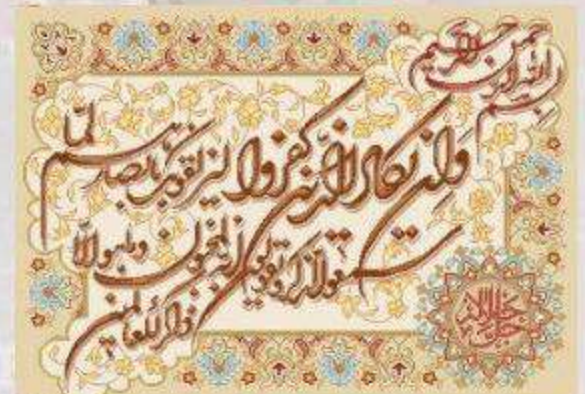 بسم الله الرحمن الرحيم
وَإِن يَكَادُ الَّذِينَ كَفَرُوا لَيُزْلِقُونَكَ بِأَبْصَارِهِمْ لَمَّا
سَمِعُوا الذِّكْرَ وَيَقُولُونَ إِنَّهُ لَمَجْنُونٌ وَمَا هُوَ إِلَّا
ذِكْرٌ لِّلْعَالَمِينَ
جل جلاله